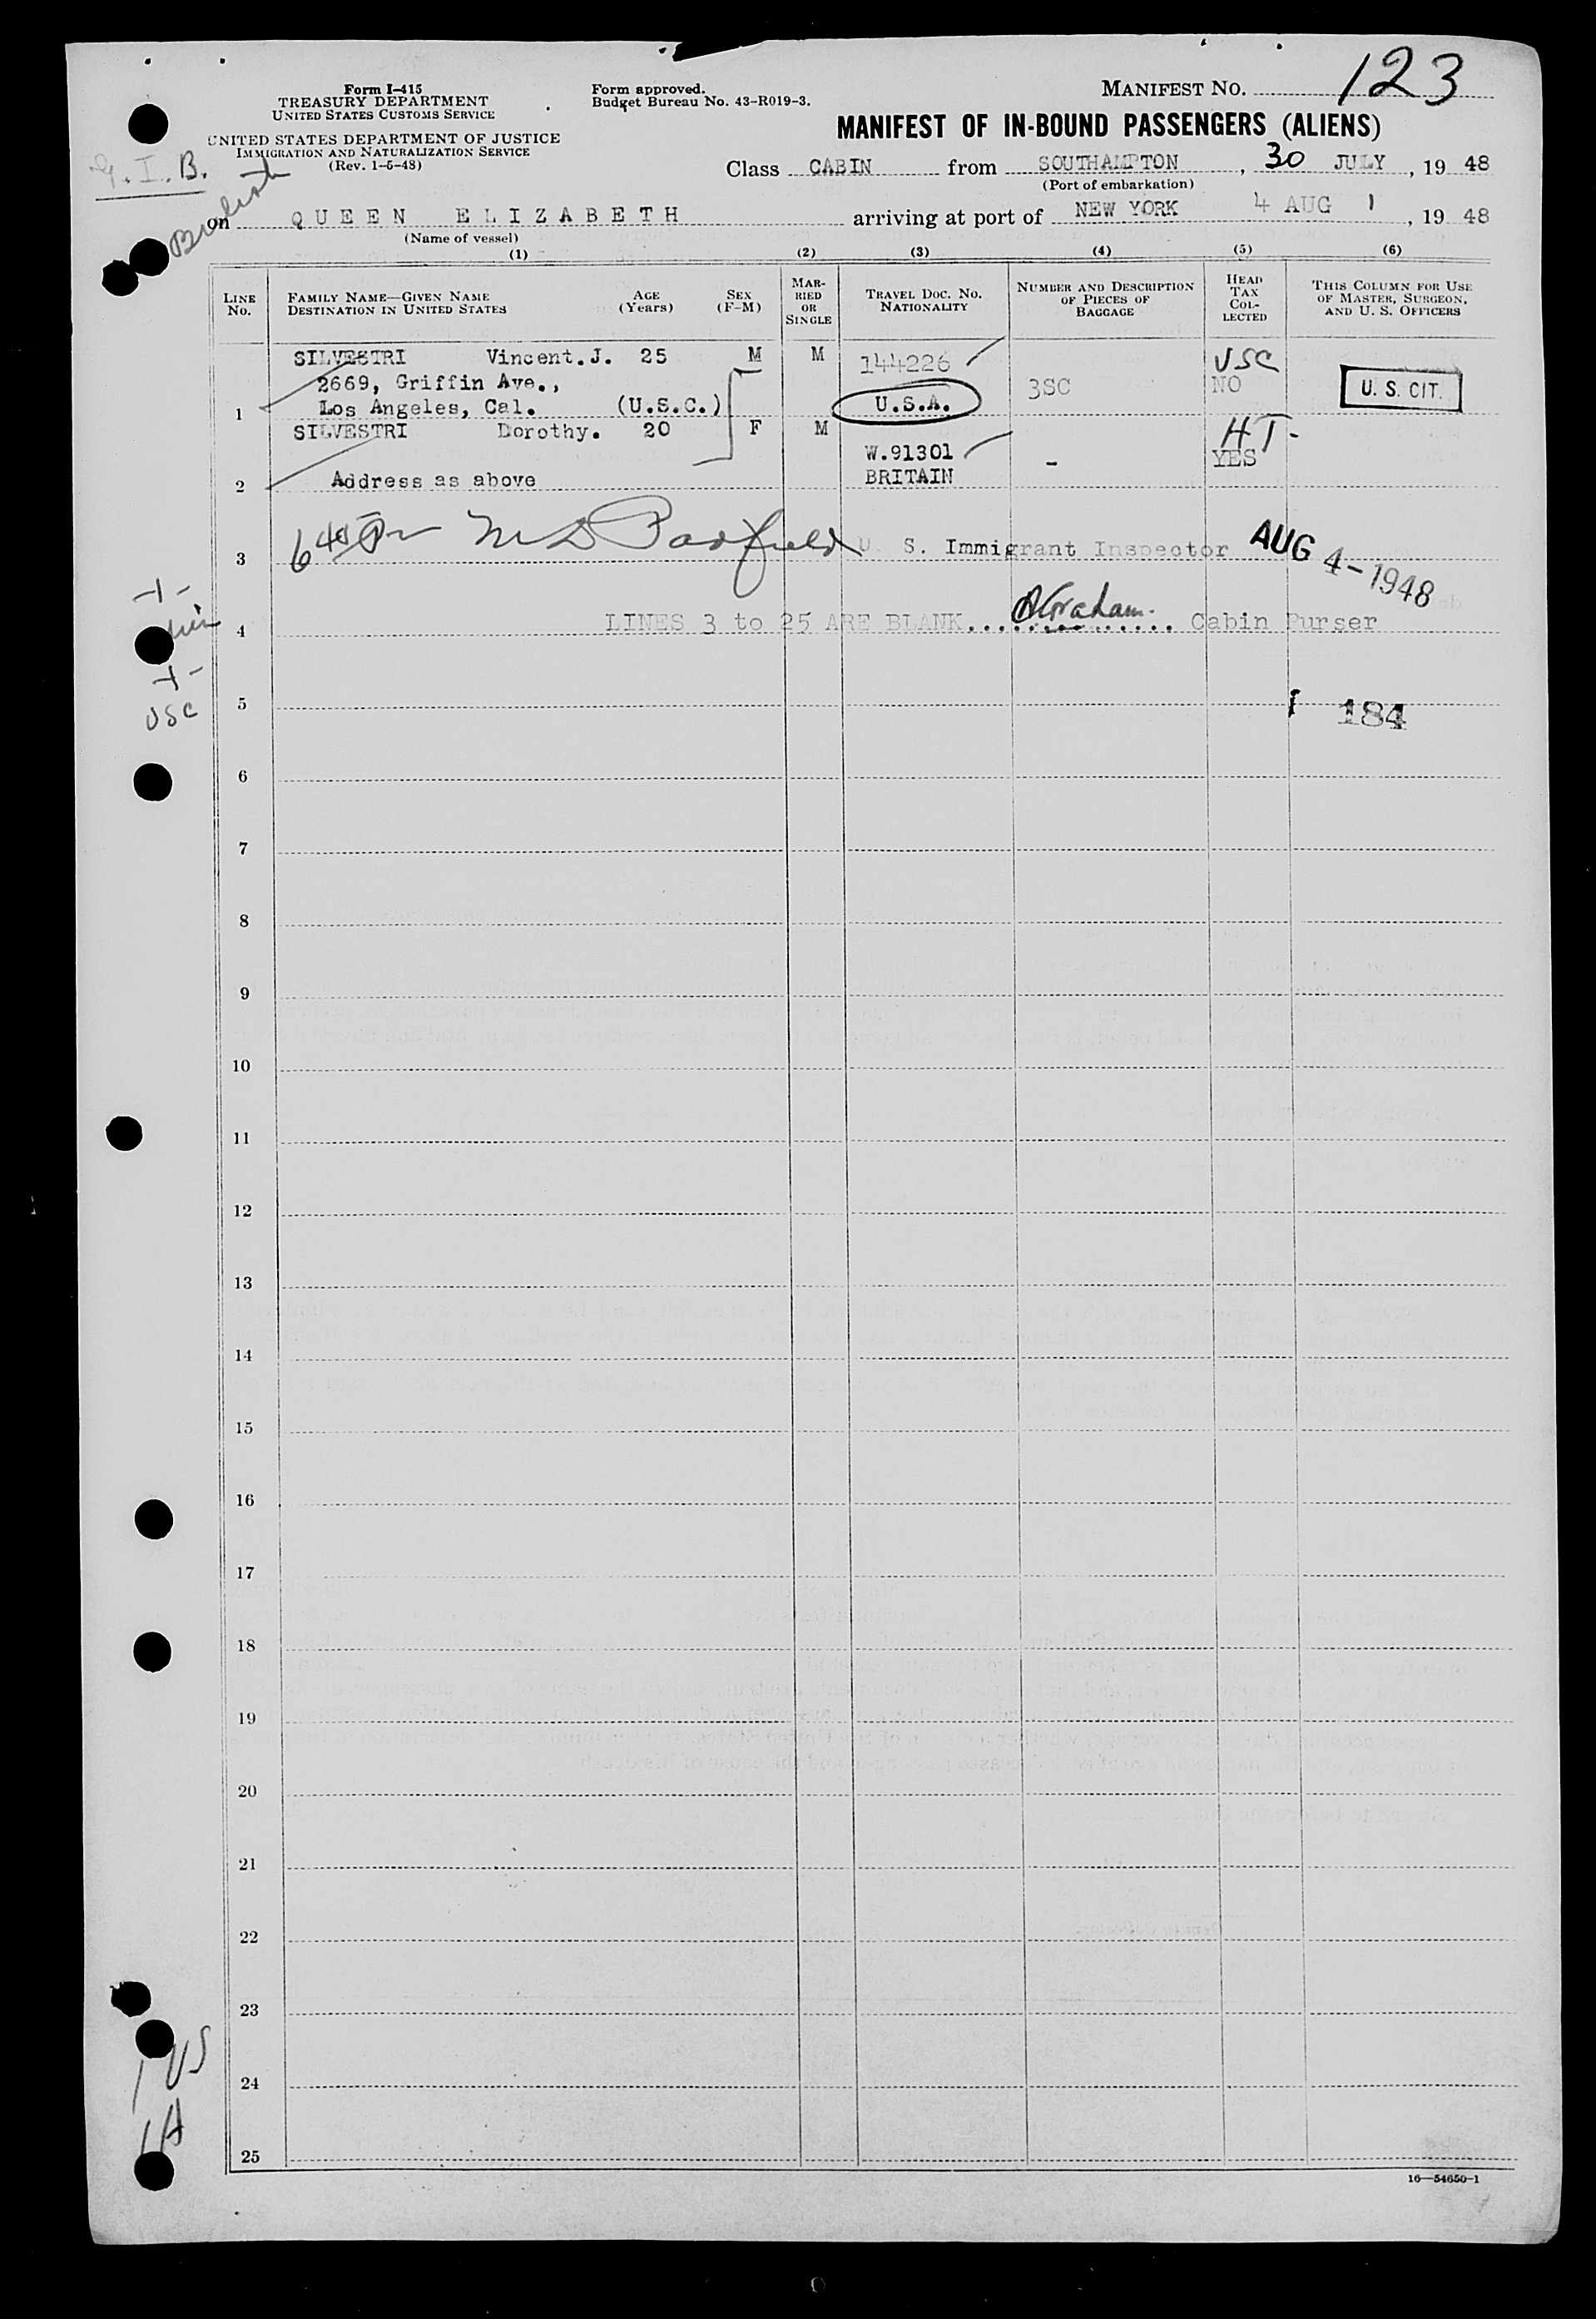 Form I-415
TREASURY DEPARTMENT
UNITED STATES CUSTOMS SERVICE
UNITED STATES DEPARTMENT OF JUSTICE
IMMIGRATION AND NATURALIZATION SERVICE
(Rev. 1-5-48)
Form approved.
Budget Bureau No. 43-R019-3.
MANIFEST NO. 123
MANIFEST OF IN-BOUND PASSENGERS (ALIENS)
G.I.B.
Class CABIN from SOUTHAMPTON, 30 JULY, 19 48
(Port of embarkation)
on QUEEN ELIZABETH arriving at port of NEW YORK 4 AUG 1, 19 48
(Name of vessel)
(1) (2) (3) (4) (5) (6)
LINE NO.
FAMILY NAME—GIVEN NAME
DESTINATION IN UNITED STATES
AGE (Years)
SEX (F-M)
MARRIED OR SINGLE
TRAVEL DOC. NO.
NATIONALITY
NUMBER AND DESCRIPTION OF PIECES OF BAGGAGE
HEAD TAX COLLECTED
THIS COLUMN FOR USE OF MASTER, SURGEON, AND U. S. OFFICERS
SILVESTRI Vincent.J. 25 M M 144226 USC
2669, Griffin Ave., 3SC NO U. S. CIT.
1 Los Angeles, Cal. (U.S.C.) U.S.A.
SILVESTRI Dorothy. 20 F M HT-
W.91301 - YES
2 Address as above BRITAIN
3 U. S. Immigrant Inspector AUG 4-1948
4 LINES 3 to 25 ARE BLANK............... AGraham. Cabin Purser
USC
5 184
6
7
8
9
10
11
12
13
14
15
16
17
18
19
20
21
22
23
1 US
24
1A
25
16—54650-1